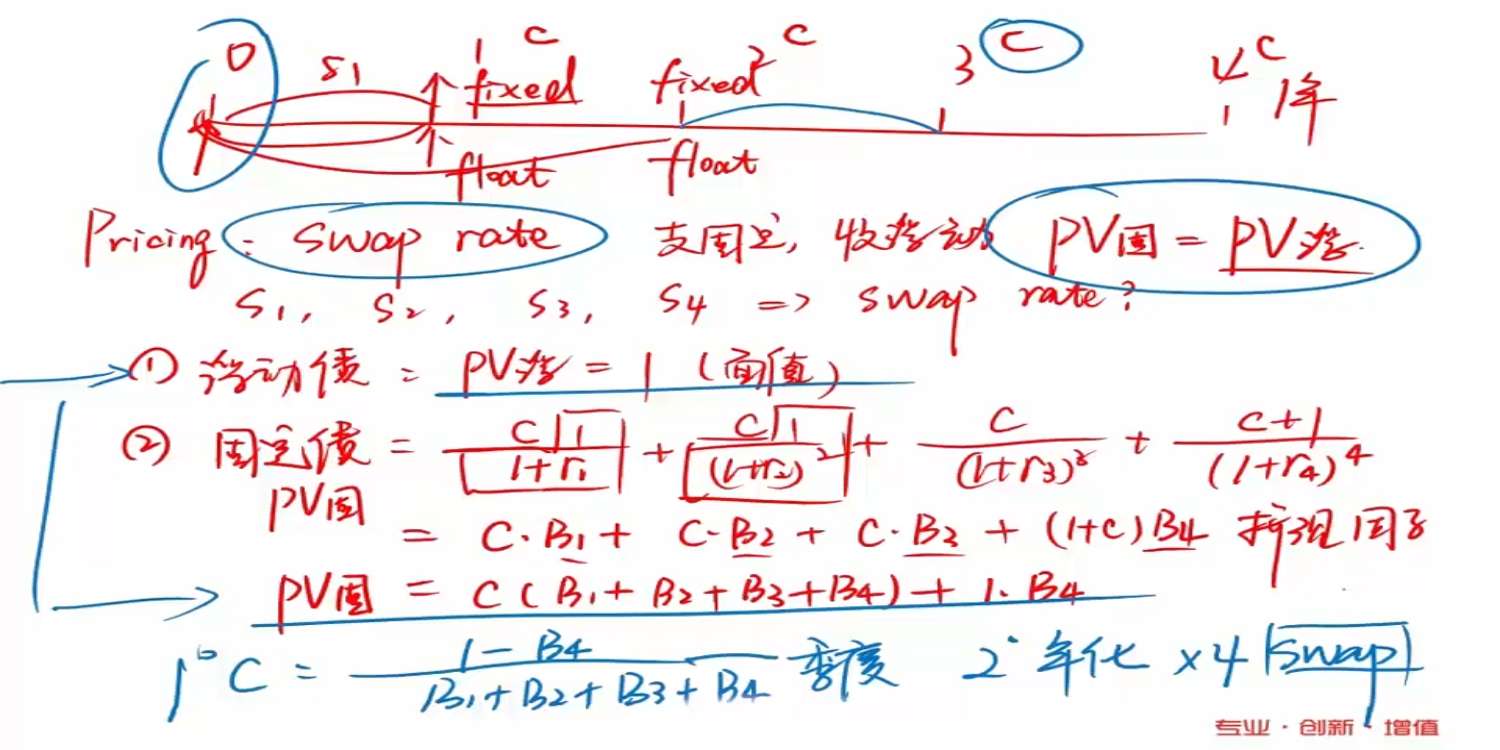 0 S1 1 C 2 C 3 C 4 C
fixed fixed 1年
float float
Pricing: swap rate 支固定, 收浮动 PV固 = PV浮.
S1, S2, S3, S4 => swap rate?
① 浮动债: PV浮 = 1 (面值)
② 固定债 = C·1/(1+r1) + C·1/(1+r2)^2 + C/(1+r3)^3 + C+1/(1+r4)^4
PV固
= C·B1 + C·B2 + C·B3 + (1+C)B4 折现因子
PV固 = C(B1+B2+B3+B4)+1·B4
1° C = 1-B4/B1+B2+B3+B4 季度 2° 年化 ×4 swap
专业·创新·增值